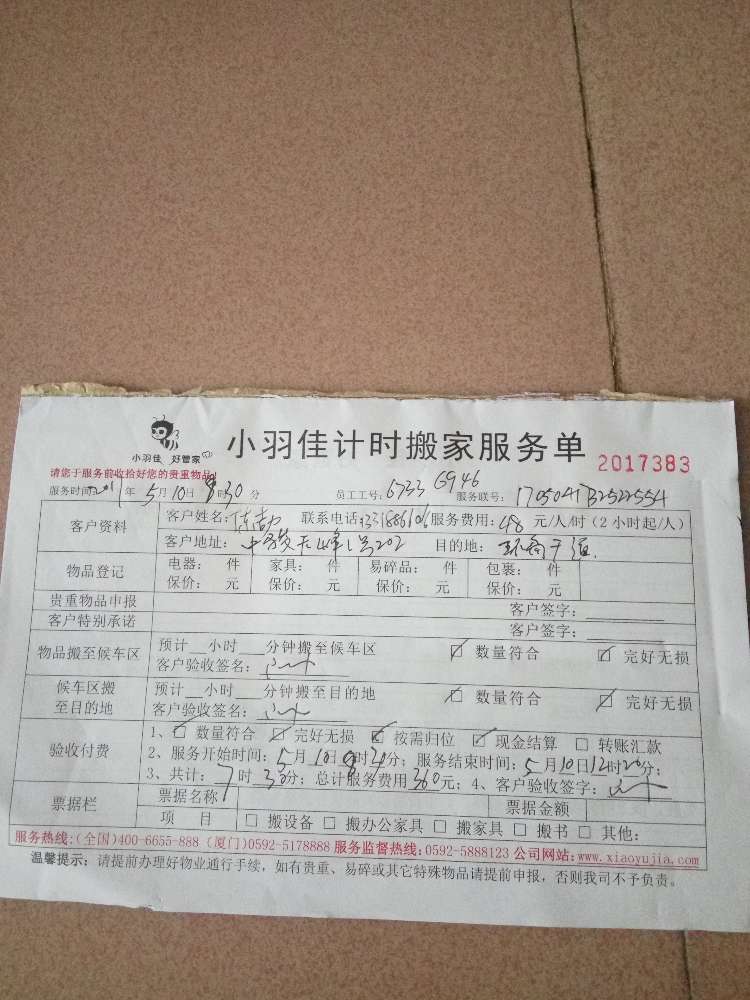 小羽佳 好管家
小羽佳计时搬家服务单 2017383
请您于服务前收拾好您的贵重物品!
服务时间: 2017年5月10日8时30分 员工工号: 6733 6946 服务联号:
客户资料 客户姓名: 联系电话: 服务费用: 48 元/人/时(2小时起/人)
客户地址: 目的地:
物品登记 电器: 件 家具: 件 易碎品: 件 包裹: 件
保价: 元 保价: 元 保价: 元 保价: 元
贵重物品申报 客户签字:
客户特别承诺 客户签字:
物品搬至候车区 预计__小时__分钟搬至候车区 数量符合 完好无损
客户验收签名:
候车区搬至目的地 预计__小时__分钟搬至目的地 数量符合 完好无损
客户验收签名:
验收付费 1、数量符合 完好无损 按需归位 现金结算 转账汇款
2、服务开始时间: 5月10日8时 分; 服务结束时间: 5月10日12时20分;
3、共计: 7时30分; 总计服务费用360元; 4、客户验收签字:
票据栏 票据名称 票据金额
项 目 搬设备 搬办公家具 搬家具 搬书 其他:
服务热线:(全国)400-6655-888 (厦门)0592-5178888 服务监督热线:0592-5888123 公司网站:www.xiaoyujia.com
温馨提示: 请提前办理好物业通行手续,如有贵重、易碎或其它特殊物品请提前申报,否则我司不予负责。